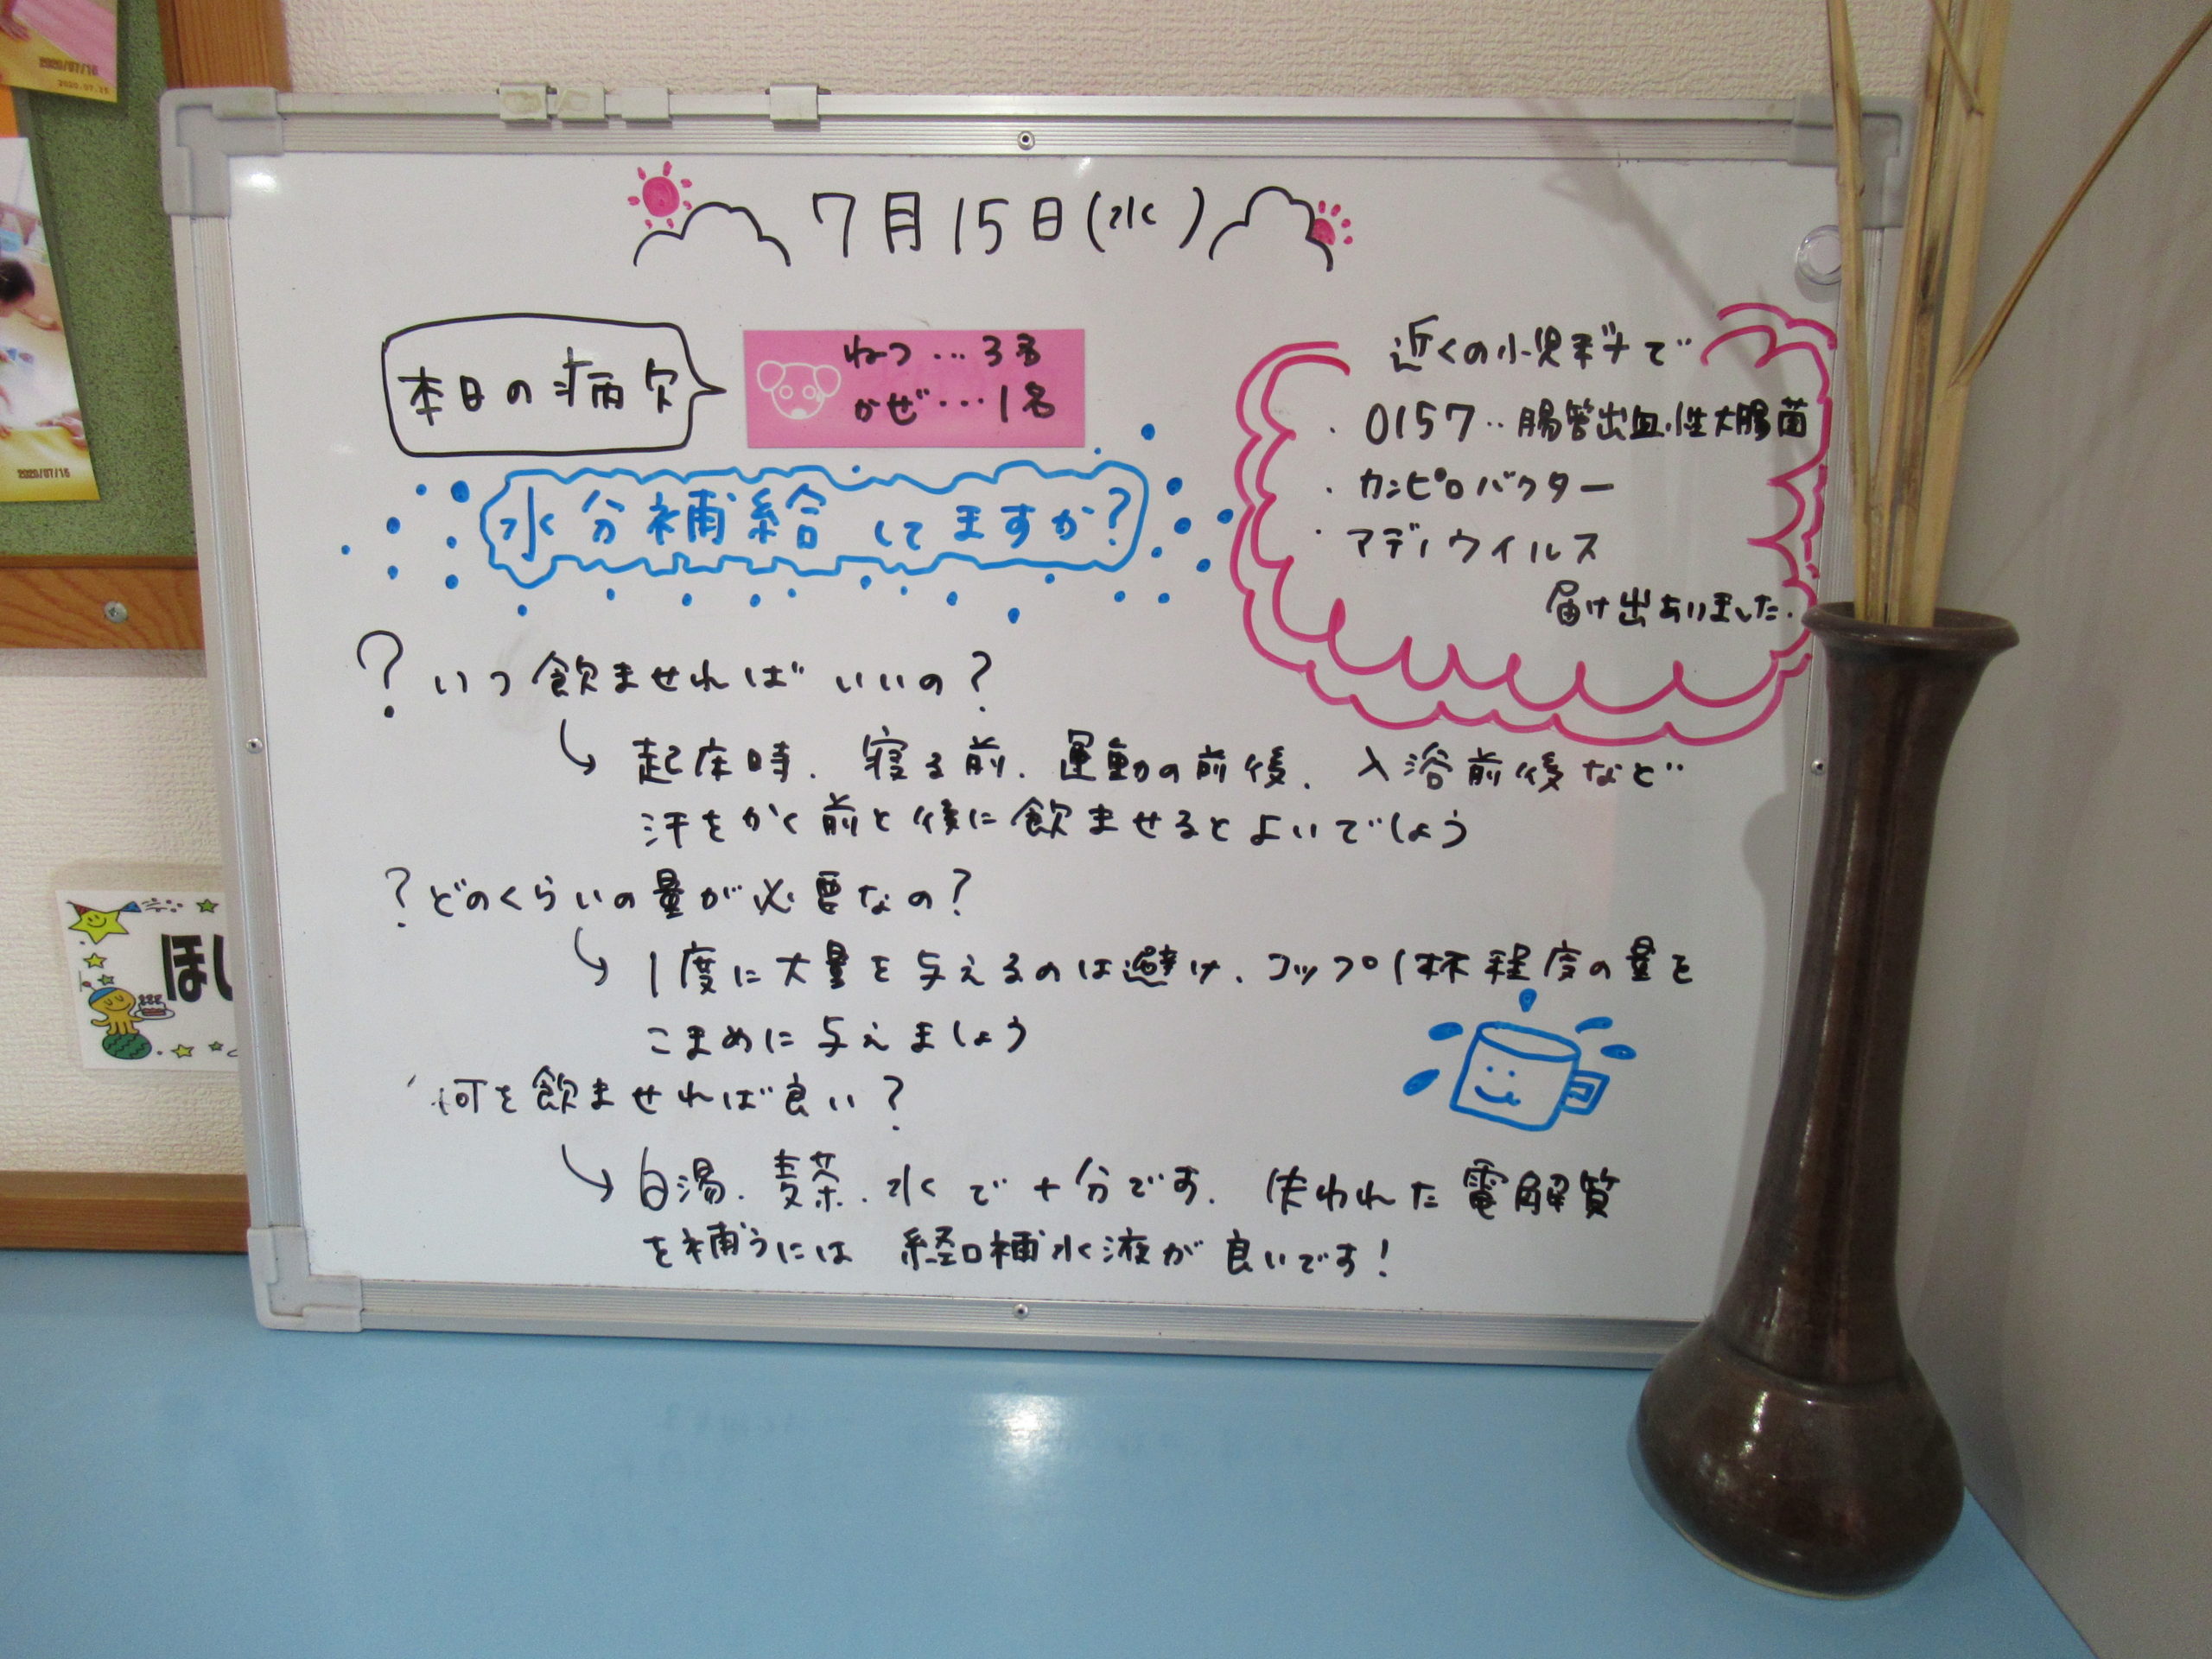 7月15日(水)
本日の病欠
ねつ…3名
かぜ…1名
近くの小児科で
・O157‥腸管出血性大腸菌
・カンピロバクター
・アデノウイルス
届け出ありました.
水分補給してますか?
?いつ飲ませればいいの?
起床時、寝る前、運動の前後、入浴前後など
汗をかく前と後に飲ませるとよいでしょう
?どのくらいの量が必要なの?
1度に大量を与えるのは避け、コップ1杯程度の量を
こまめに与えましょう
何を飲ませれば良い?
白湯、麦茶、水で十分です。失われた電解質
を補うには経口補水液が良いです!
2020/07/16
2020.07.15
2020/07/16